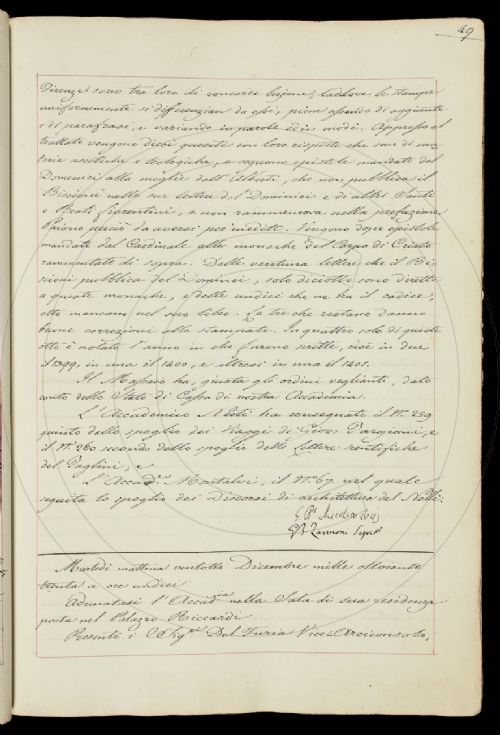 49
Firenze sono tra loro di concorde lezione; laddove le stampe
uniformemente si differenzian da essi, piene essendo di aggiunte
e di parafrasi, e variando in parole ed in modi. Appresso al
trattato vengono dieci quesiti con loro risposte che son di ma-
terie ascetiche e teologiche, e seguono epistole mandate dal
Domenici alla moglie dell'Alberti, che non pubblicò il
Biscioni nelle sue lettere del Dominici e di altri Santi
e Beati fiorentini, e non rammemora nella prefazione.
Paiono perciò da aversi per inedite. Vengono dopo epistole
mandate dal Cardinale alle monache del Corpo di Cristo
rammentato di sopra. Delle ventuna lettere che il Bi-
scioni pubblicò del Dominici, solo diciotto sono dirette
a queste monache, e delle undici che ne ha il codice,
otto mancano nel suo libro. Le tre che restano danno
buone correzioni alle stampate. In quattro solo di queste
otto è notato l'anno in che furono scritte, cioè in due
il 1399, in una il 1400, e altresì in una il 1401.
Il Massaio ha, giusta gli ordini veglianti, dato
conto dello Stato di Cassa di nostra Accademia.
L'Accademico Nesti ha consegnato il N.º 259
quinto dello spoglio dei Viaggi di Giov. Targioni, e
il N.º 260 secondo dello spoglio delle Lettere pontifiche
del Paglini, e
L'Accad.º Montalvi, il N.º 67, nel quale
seguita lo spoglio dei Discorsi di architettura del Nelli.
G. B. Zannoni Segret.
Martedì mattina ventotto Dicembre mille ottocento
trenta a ore undici
Adunatasi l'Accad.ia nella Sala di sua residenza
posta nel Palazzo Riccardi
Presenti i Sig.ri Del Furia Vice-Arciconsolo,